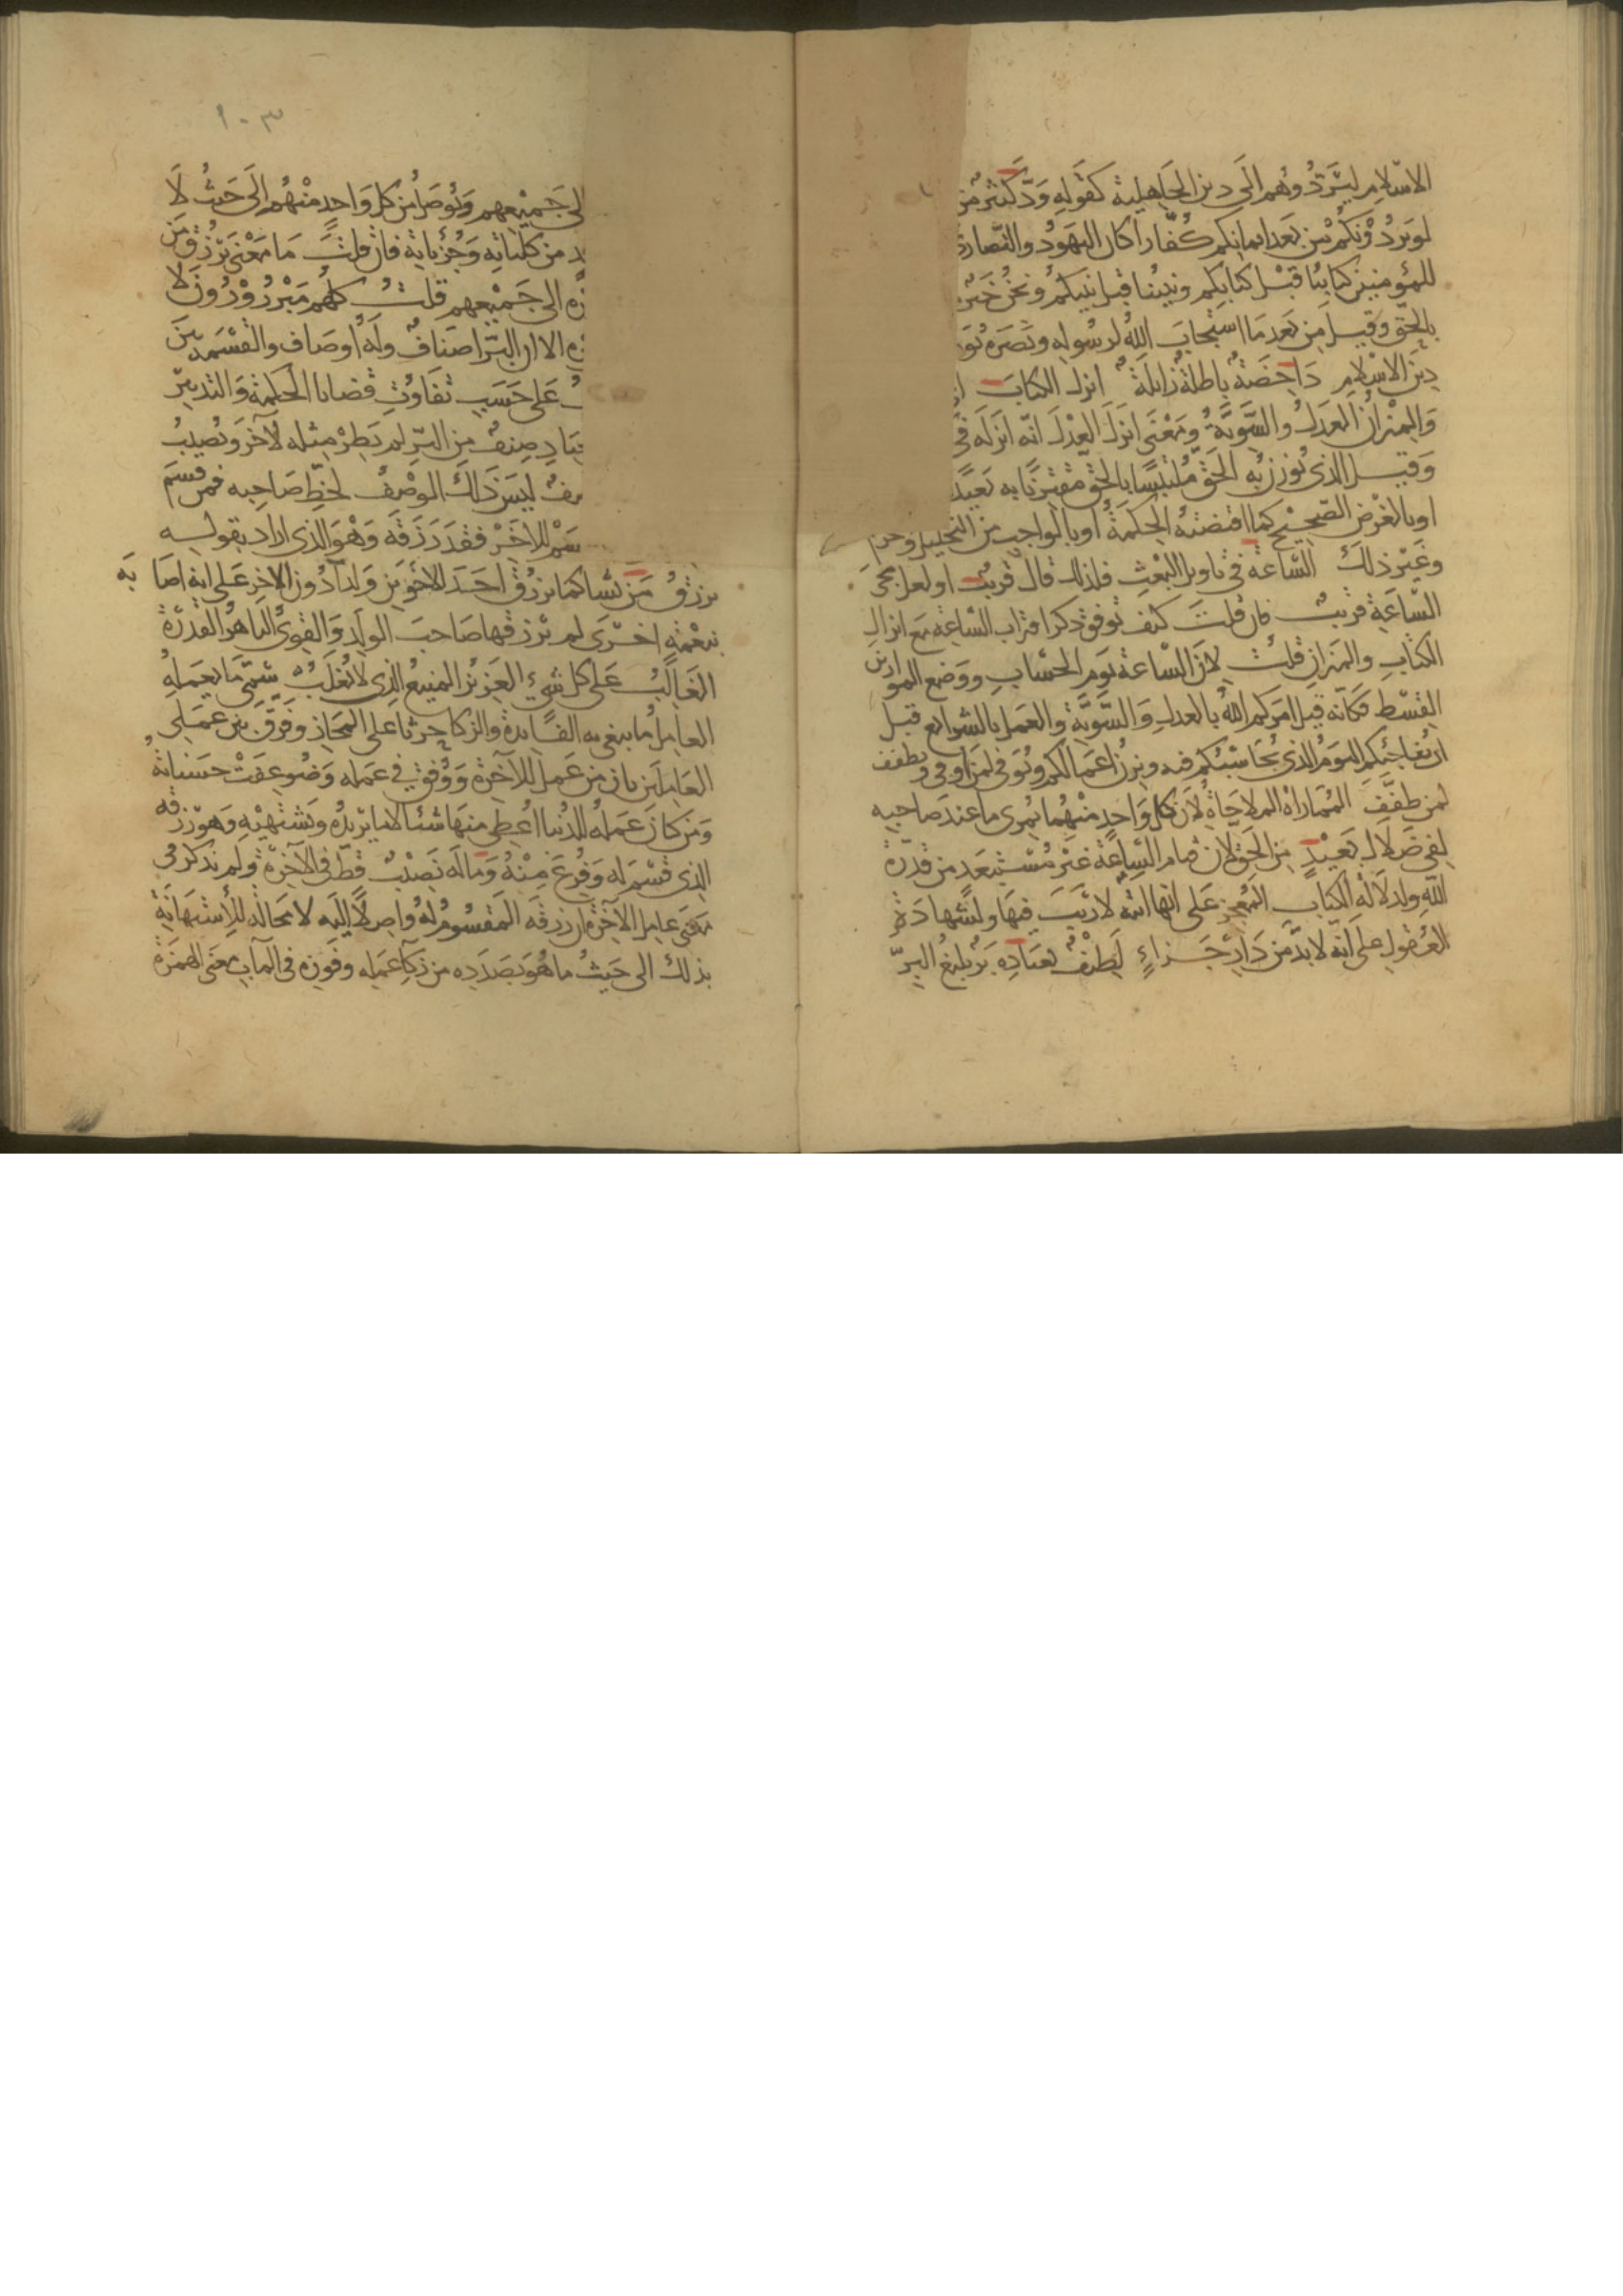 الاسلام ليردوهم الى دين الجاهلية كقوله ود كثير من
لو يردونكم من بعد ايمانكم كفارا كان اليهود والنصارى
للمؤمنين كتابنا قبل كتابكم ونبينا قبل نبيكم ونحن خير
بالحق وقيل من بعد ما استجاب الله لرسوله ونصره يوم
دين الاسلام داحضة باطلة زايلة انزل الكتاب
والميزان العدل والسوية ومعنى انزل العدل انه انزله في
وقيل الذي يوزن به الحق ملتبسا بالحق مقترنا به بعيدا
او بالغرض الصحيح كما اقتضته الحكمة او بالواجب من التحليل
وغير ذلك الساعة في تاويل البعث فلذلك قال قريب او لعل مجى
الساعة قريب فان قلت كيف توفق ذكر اقتراب الساعة مع انزال
الكتاب والميزان قلت لان الساعة يوم الحساب ووضع الموازين
القسط فكانه قيل امركم الله بالعدل والسوية والعمل بالشرايع قبل
ان يفاجئكم اليوم الذي يحاسبكم فيه ويزن اعمالكم ويوفى لمن اوفى ويطفف
لمن طفف المماراة الملاجاة لان كل واحد منهما يمرى ما عند صاحبه
لفي ضلال بعيد من الحق لان قيام الساعة غير مستبعد من قدرة
الله ولدلالة الكتاب المعجز على انها اتية لا ريب فيها ولشهادة
العقول على انه لا بد من دار جزاء لطيف بعباده بر بليغ البر
١٠٣
الى جميعهم وتوصل من كل واحد منهم الى حيث لا
من كلياته وجزياته فان قلت ما معنى يرزق من
الى جميعهم قلت كلهم مبرورون لا
الا ان البر اصناف وله اوصاف والقسمة بين
على حسب تفاوت قضايا الحكمة والتدبير
صنف من البر لم يطر مثله لآخر ويصيب
ليس ذلك الوصف لحظ صاحبه فمن قسم
للاخر فقد رزقه وهو الذي اراد بقوله
يرزق من يشا كما يرزق احد الاخوين ولدا دون الاخر على انه اصابه
بنعمة اخرى لم يرزقها صاحب الولد والقوي الباهر القدرة
الغالب على كل شيء العزيز المنيع الذي لا يغلب سمى ما يعمله
العامل مما يبغي به الفايدة والزكا حرثا على المجاز وفرق بين عملي
العاملين بان من عمل للآخرة ووفق في عمله وضوعفت حسناته
ومن كان عمله للدنيا اعطى منها شيئا لا ما يريده ويشتهيه وهو رزقه
الذي قسم له وفرغ منه وما له نصيب قط في الآخرة ولم يذكر في
معنى عامل الآخرة ان رزقه المقسوم له واصل اليه لا محالة للاستهانة
بذلك الى حيث ما هو بصدده من زكآ عمله وفوزه في المآب معنى الهمزة